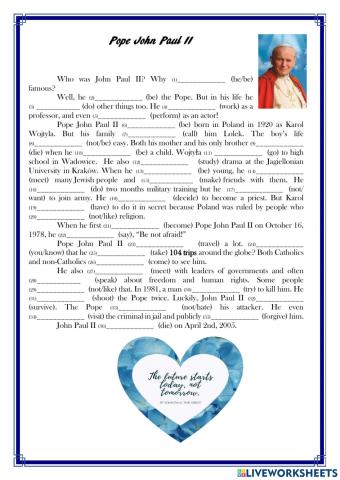 Pope John Paul II
Who was John Paul II? Why (1)____________ (he/be)
famous?
Well, he (2)____________ (be) the Pope. But in his life he
(3)____________ (do) other things too. He (4)____________ (work) as a
professor, and even (5)____________ (perform) as an actor!
Pope John Paul II (6)____________ (be) born in Poland in 1920 as Karol
Wojtyla. But his family (7)____________ (call) him Lolek. The boy's life
(8)____________ (not/be) easy. Both his mother and his only brother (9)____________
(die) when he (10)____________ (be) a child. Wojtyla (11)____________ (go) to high
school in Wadowice. He also (12)____________ (study) drama at the Jagiellonian
University in Kraków. When he (13)____________ (be) young, he (14)____________
(meet) many Jewish people and (15)____________ (make) friends with them. He
(16)____________ (do) two months military training but he (17)____________ (not/
want) to join army. He (18)____________ (decide) to become a priest. But Karol
(19)____________ (have) to do it in secret because Poland was ruled by people who
(20)____________ (not/like) religion.
When he first (21)____________ (become) Pope John Paul II on October 16,
1978, he (22)____________ (say), "Be not afraid!"
Pope John Paul II (23)____________ (travel) a lot. (24)____________
(you/know) that he (25)____________ (take) 104 trips around the globe? Both Catholics
and non-Catholics (26)____________ (come) to see him.
He also (27)____________ (meet) with leaders of governments and often
(28)____________ (speak) about freedom and human rights. Some people
(29)____________ (not/like) that. In 1981, a man (30)____________ (try) to kill him. He
(31)____________ (shoot) the Pope twice. Luckily, John Paul II (32)____________
(survive). The Pope (33)____________ (not/hate) his attacker. He even
(34)____________ (visit) the criminal in jail and publicly (35)____________ (forgive) him.
John Paul II (36)____________ (die) on April 2nd, 2005.
The future starts
today, not
tomorrow.
LIVEWORKSHEETS